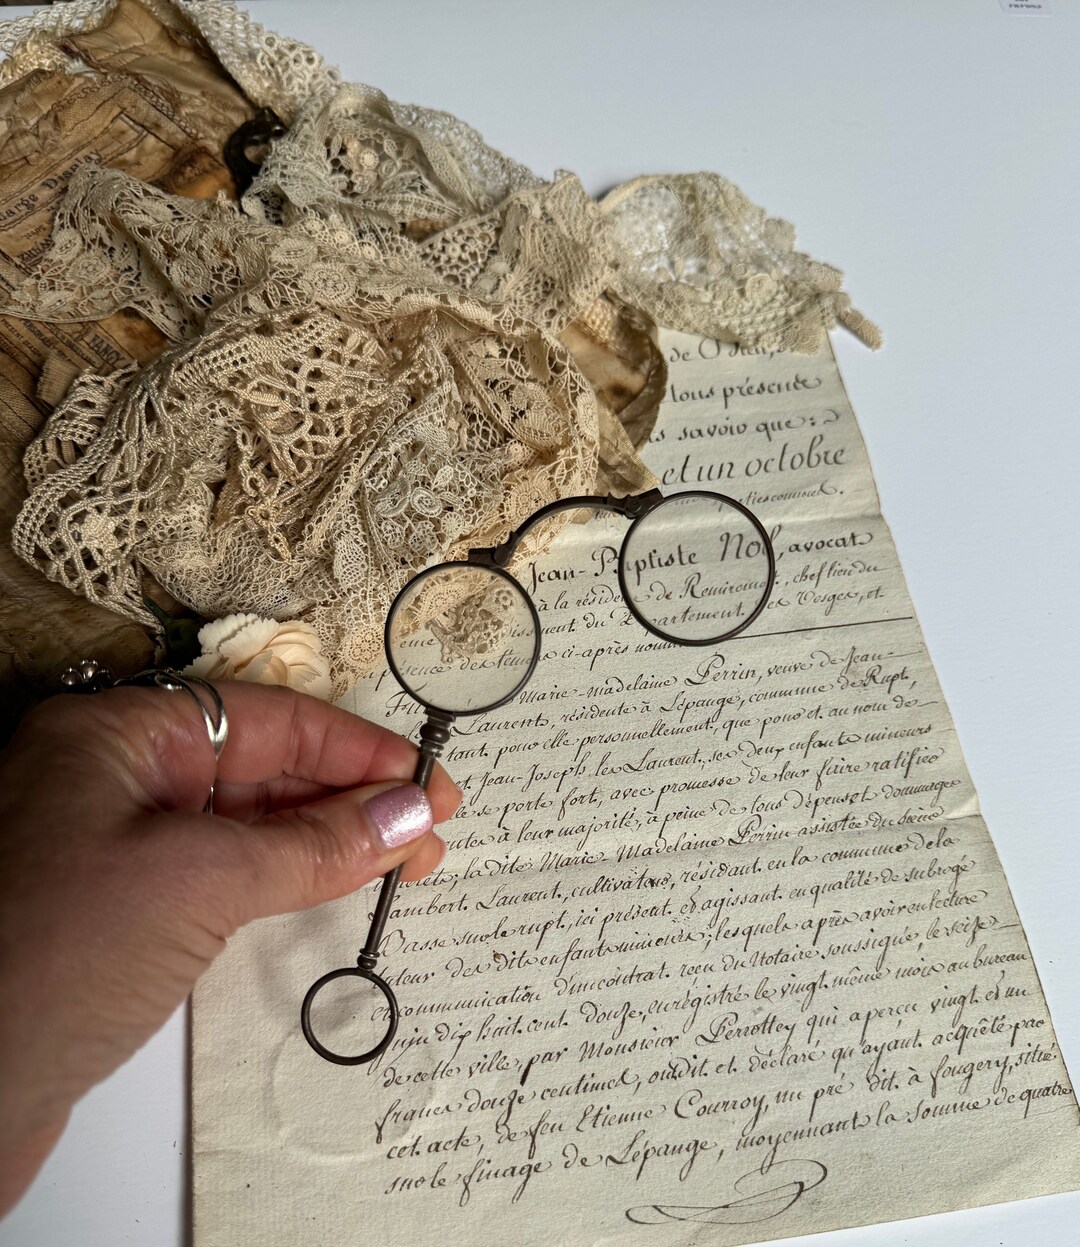 large Display
FANCY
de
tous présente
savoir que :
et un octobre
Jean-Baptiste Noël, avocat
à la résidence de Remiremont, chef lieu du
du département des Vosges, et
présence des témoins ci-après nommés
Marie-madelaine Perrin, veuve de Jean-
Laurent, résidente à Lépange, commune de Rupt,
tant pour elle personnellement, que pour et au nom de
et Jean-Joseph les Laurent, ses deux enfants mineurs
se porte fort, avec promesse de leur faire ratifier
à leur majorité, à peine de tous dépens et dommages
la dite Marie-Madelaine Perrin assistée du sieur
Lambert Laurent, cultivateur, résidant en la commune de la
Basse sur le rupt, ici présent et agissant en qualité de subrogé
tuteur des dits enfants mineurs ; lesquels après avoir eu lecture
et communication d'un contrat reçu du Notaire soussigné, le seize
juin dix huit cent douze, enregistré le vingt même mois au bureau
de cette ville, par Monsieur Perrottey qui a perçu vingt et un
francs douze centimes, ont dit et déclaré qu'ayant acquêté par
cet acte, de feu Etienne Courroy, un pré dit à fougery, situé
sur le finage de Lépange, moyennant la somme de quatre